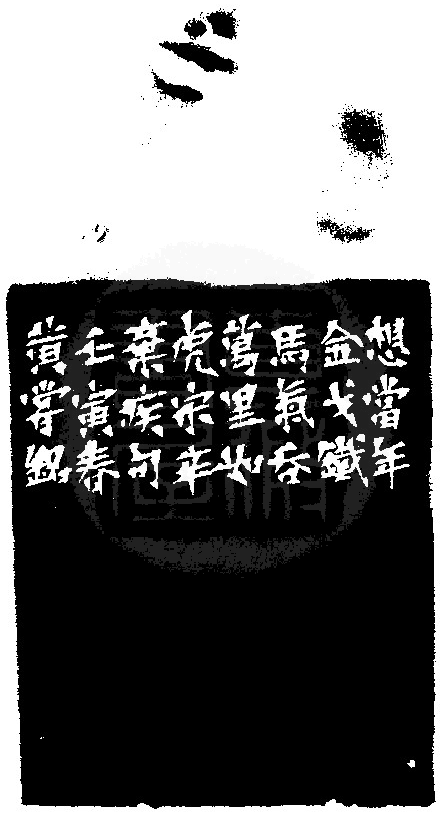 想當年
金戈鐵
馬氣吞
萬里如
虎宋辛
棄疾句
壬寅春
黃嘗銘